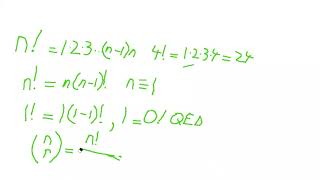 n! = 1·2·3··(n-1)n  4! = 1·2·3·4 = 24
n! = n(n-1)!  n = 1
1! = 1(1-1)! , 1 = 0! QED
(n n) = n!/